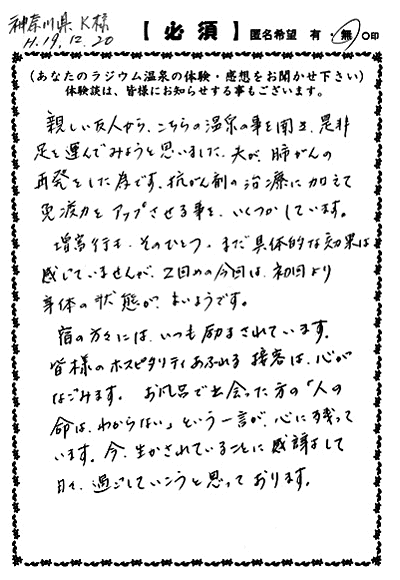 神奈川県 K様
H.19.12.20
【必須】 匿名希望 有・無 ○印
(あなたのラジウム温泉の体験・感想をお聞かせ下さい)
体験談は、皆様にお知らせする事もございます。
親しい友人から、こちらの温泉の事を聞き、是非
足を運んでみようと思いました。夫が、肺がんの
再発をした為です。抗がん剤の治療に加えて
免疫力をアップさせる事を、いくつかしています。
増富行も、そのひとつ。まだ具体的な効果は
感じていませんが、2回めの今回は、初回より
身体の状態が、よいようです。
宿の方々には、いつも励まされています。
皆様のホスピタリティあふれる接客は、心が
なごみます。お風呂で出会った方の「人の
命は、わからない」という一言が、心に残って
います。今、生かされていることに感謝して
日々、過ごしていこうと思っております。